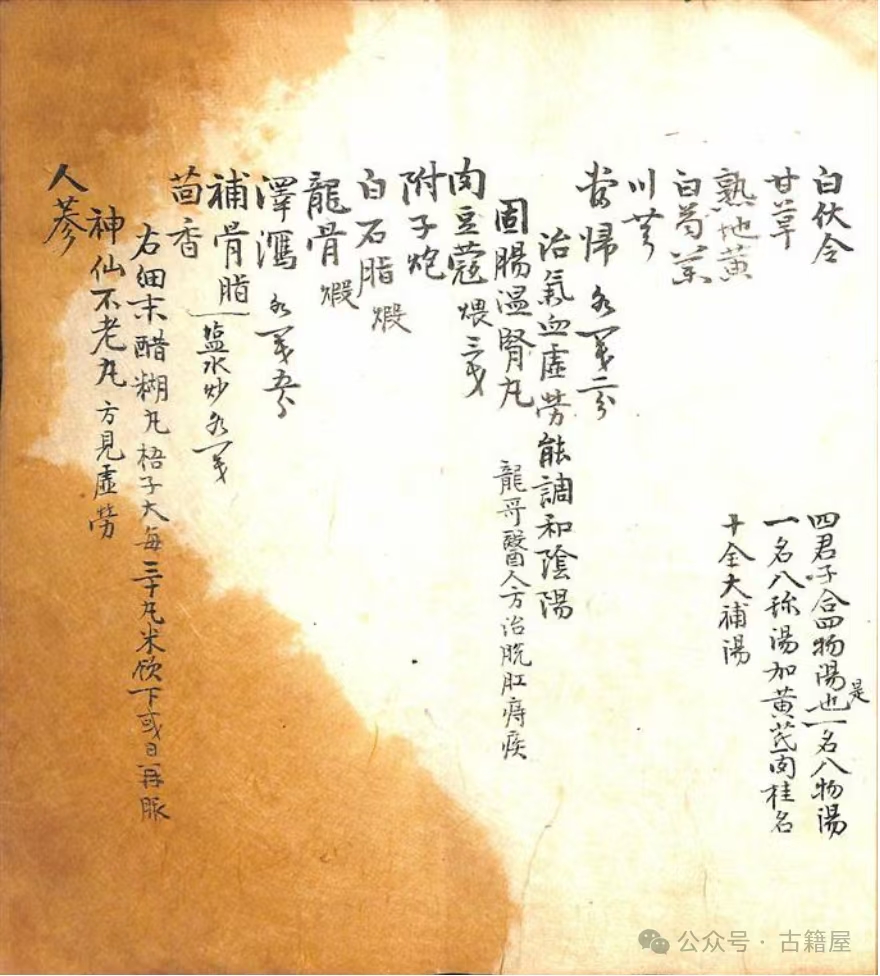 白伏令
甘草
熟地黄
白芍薬
川芎
四君子合四物湯也一名八物湯
是
一名八珎湯加黄芪肉桂名
十全大補湯
當帰 各一戔二分
治氣血虛勞能調和陰陽
固腸温腎丸 龍哥醫人方治脱肛痔疾
肉豆蔻 煨三戔
附子炮
白石脂 煅
龍骨 煅
澤瀉 各一戔五分
補骨脂 塩水炒各一戔
茴香
右細末醋糊丸梧子大每三十丸米飲下或日再服
神仙不老丸 方見虛勞
人蔘
公众号 · 古籍屋